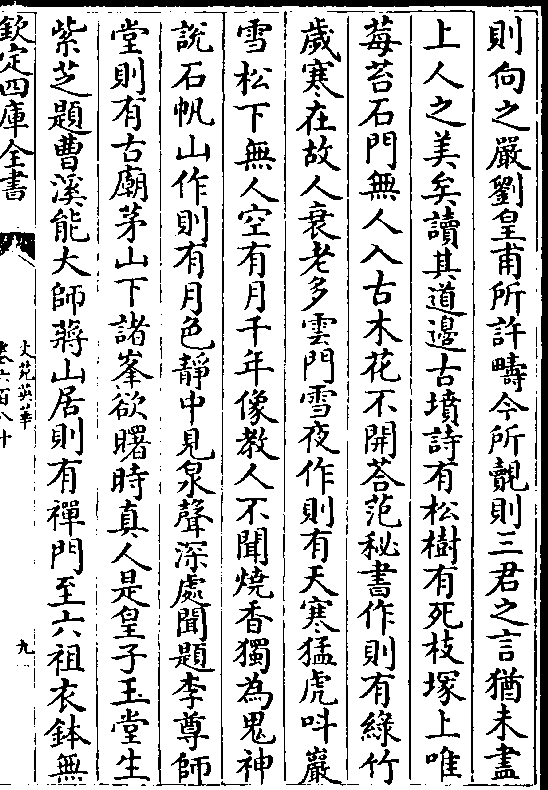 則向之嚴劉皇甫所許疇今所覿則三君之言猶未盡
上人之美矣讀其道邊古墳詩有松樹有死枝塚上唯
莓苔石門無人入古木花不開荅范秘書作則有綠竹
歲寒在故人衰老多雲門雪夜作則有天寒猛虎叫巖
雪松下無人空有月千年像教人不聞燒香獨為鬼神
說石帆山作則有月色靜中見泉聲深處聞題李尊師
堂則有古廟茅山下諸峯欲曙時真人是皇子玉堂生
紫芝題曹溪能大師蔣山居則有禪門至六祖衣鉢無
欽定四庫全書
文苑英華
卷六百八十
九